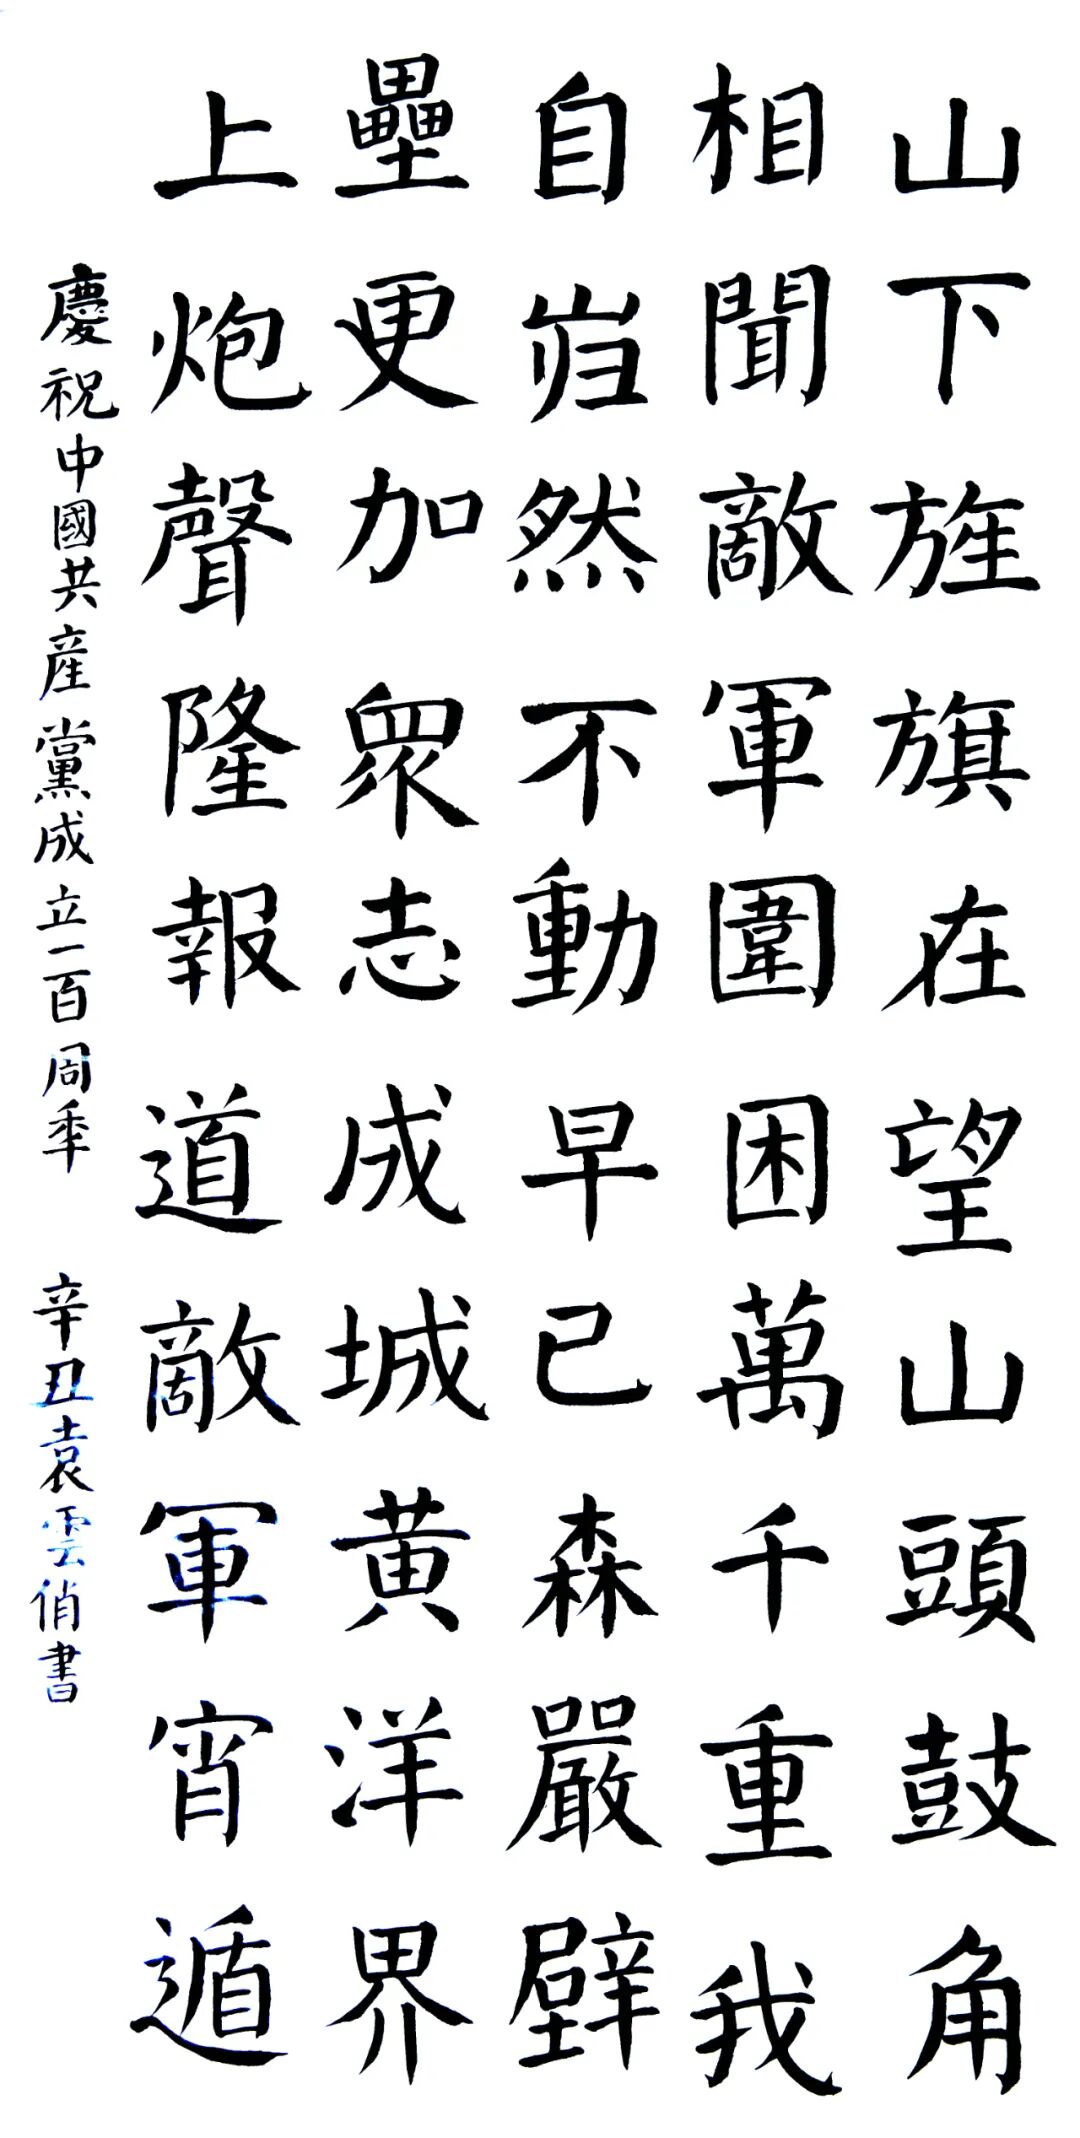 山下旌旗在望山頭鼓角
相聞敵軍圍困萬千重我
自岿然不動早已森嚴壁
壘更加眾志成城黄洋界
上炮聲隆報道敵軍宵遁
慶祝中國共產黨成立一百周年
辛丑袁雲俏書